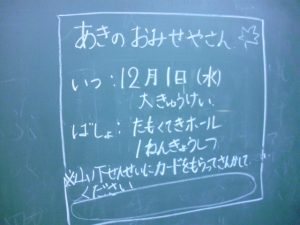 あきのおみせやさん
いつ：12月1日（水）
大きゅうけい
ばしょ：たもくてきホール
1ねんきょうしつ
※山下せんせいにカードをもらってさんかして
ください